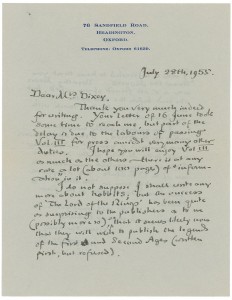 76 SANDFIELD ROAD,
HEADINGTON,
OXFORD.
TELEPHONE: OXFORD 61639.
July 29th, 1955.
Dear Mrs Dixey,
Thank you very much indeed
for writing. Your letter of 16 June took
some time to reach me, but part of the
delay is due to the labours of passing
Vol. III for press amidst very many other
duties. I hope you will enjoy Vol III
as much as the others - there is at any
rate a lot (about 100 pages) of 'infor-
mation' in it.
I do not suppose I shall write any
more about hobbits, but the success
of 'The Lord of the Rings' has been quite
so surprising to the publishers & to me
(possibly more so), that it seems likely now
that they will wish to publish the legends
of the First and Second Ages (written
first, but refused).